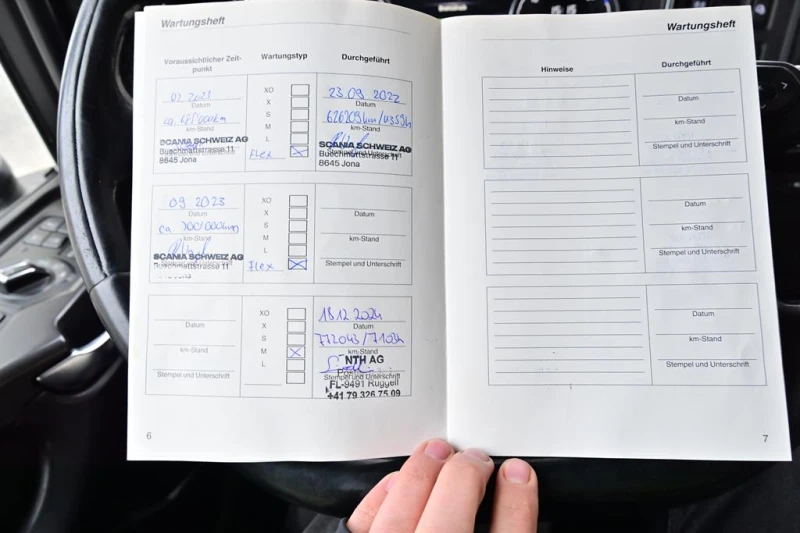 Wartungsheft
Voraussichtlicher Zeit-
punkt
Wartungstyp
Durchgeführt
Datum
km-Stand
SCANIA SCHWEIZ AG
Buechmattstrasse 11
8645 Jona
XO
X
S
M
L
Flex
23.09.2022
Datum
km-Stand
SCANIA SCHWEIZ AG
Stempel und Unterschrift
Buechmattstrasse 11
8645 Jona
09 2023
Datum
ca 700/000km
km-Stand
SCANIA SCHWEIZ AG
Buechmattstrasse 11
XO
X
S
M
L
Flex
Datum
km-Stand
Stempel und Unterschrift
Datum
km-Stand
Stempel und Unterschrift
XO
X
S
M
L
18.12.2024
Datum
km-Stand
NTH AG
Stempel und Unterschrift
FL-9491 Ruggell
+41 79 326 75 09
6
Wartungsheft
Hinweise
Durchgeführt
Datum
km-Stand
Stempel und Unterschrift
Datum
km-Stand
Stempel und Unterschrift
Datum
km-Stand
Stempel und Unterschrift
7